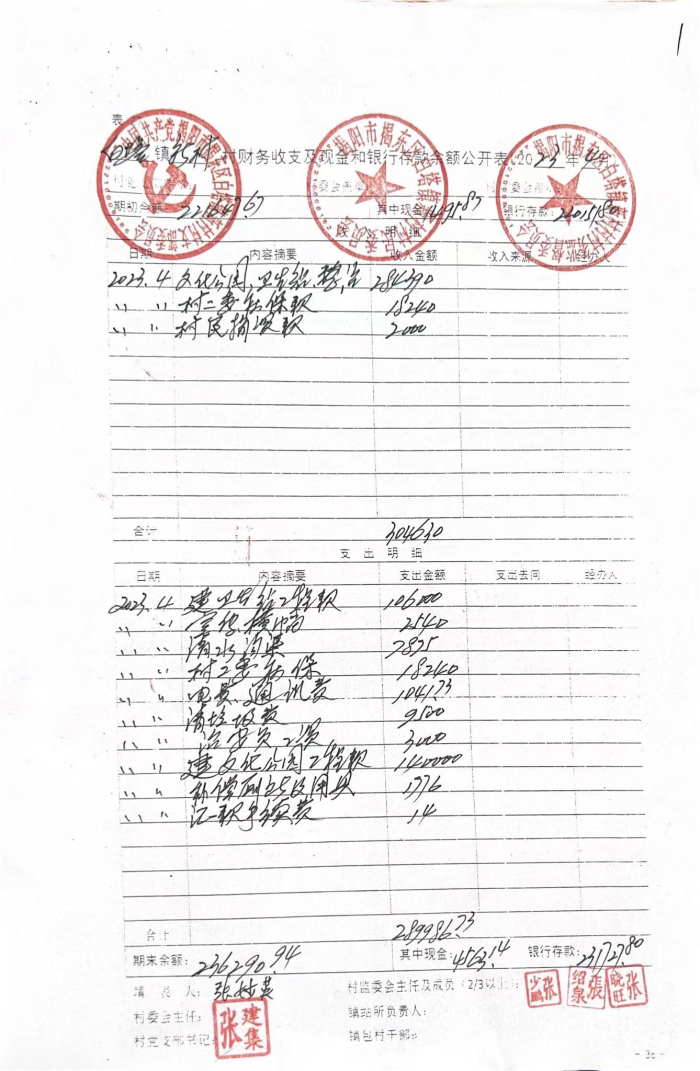 1
表
白塔镇 村财务收支及现金和银行存款余额公开表 2023年4月
期初余额: 221647.67 其中现金: 1495.87 银行存款: 220151.80
收入明细
日期 内容摘要 收入金额 收入来源 经办人
2023.4 文化公园、卫生站整治 284390
〃 〃 村二委社保款 18240
〃 〃 村民捐资款 2000
合计 304630
支出明细
日期 内容摘要 支出金额 支出去向 经办人
2023.4 建卫生站工程款 106000
〃 〃 宣传横幅 2540
〃 〃 清水沟渠 7875
〃 〃 村二委社保 18240
〃 〃 电费、通讯费 1041.73
〃 〃 清垃圾费 9500
〃 〃 治安员工资 3000
〃 〃 建文化公园工程款 140000
〃 〃 1776
〃 〃 汇款手续费 14
合计 289986.73
期末余额: 236290.94 其中现金: 4563.14 银行存款: 231727.80
填表人: 张
村监委会主任及成员(2/3以上):
少鹏张
绍泉張
晓旺张
村委会主任:
张建集
镇站所负责人:
村党支部书记:
镇包村干部: